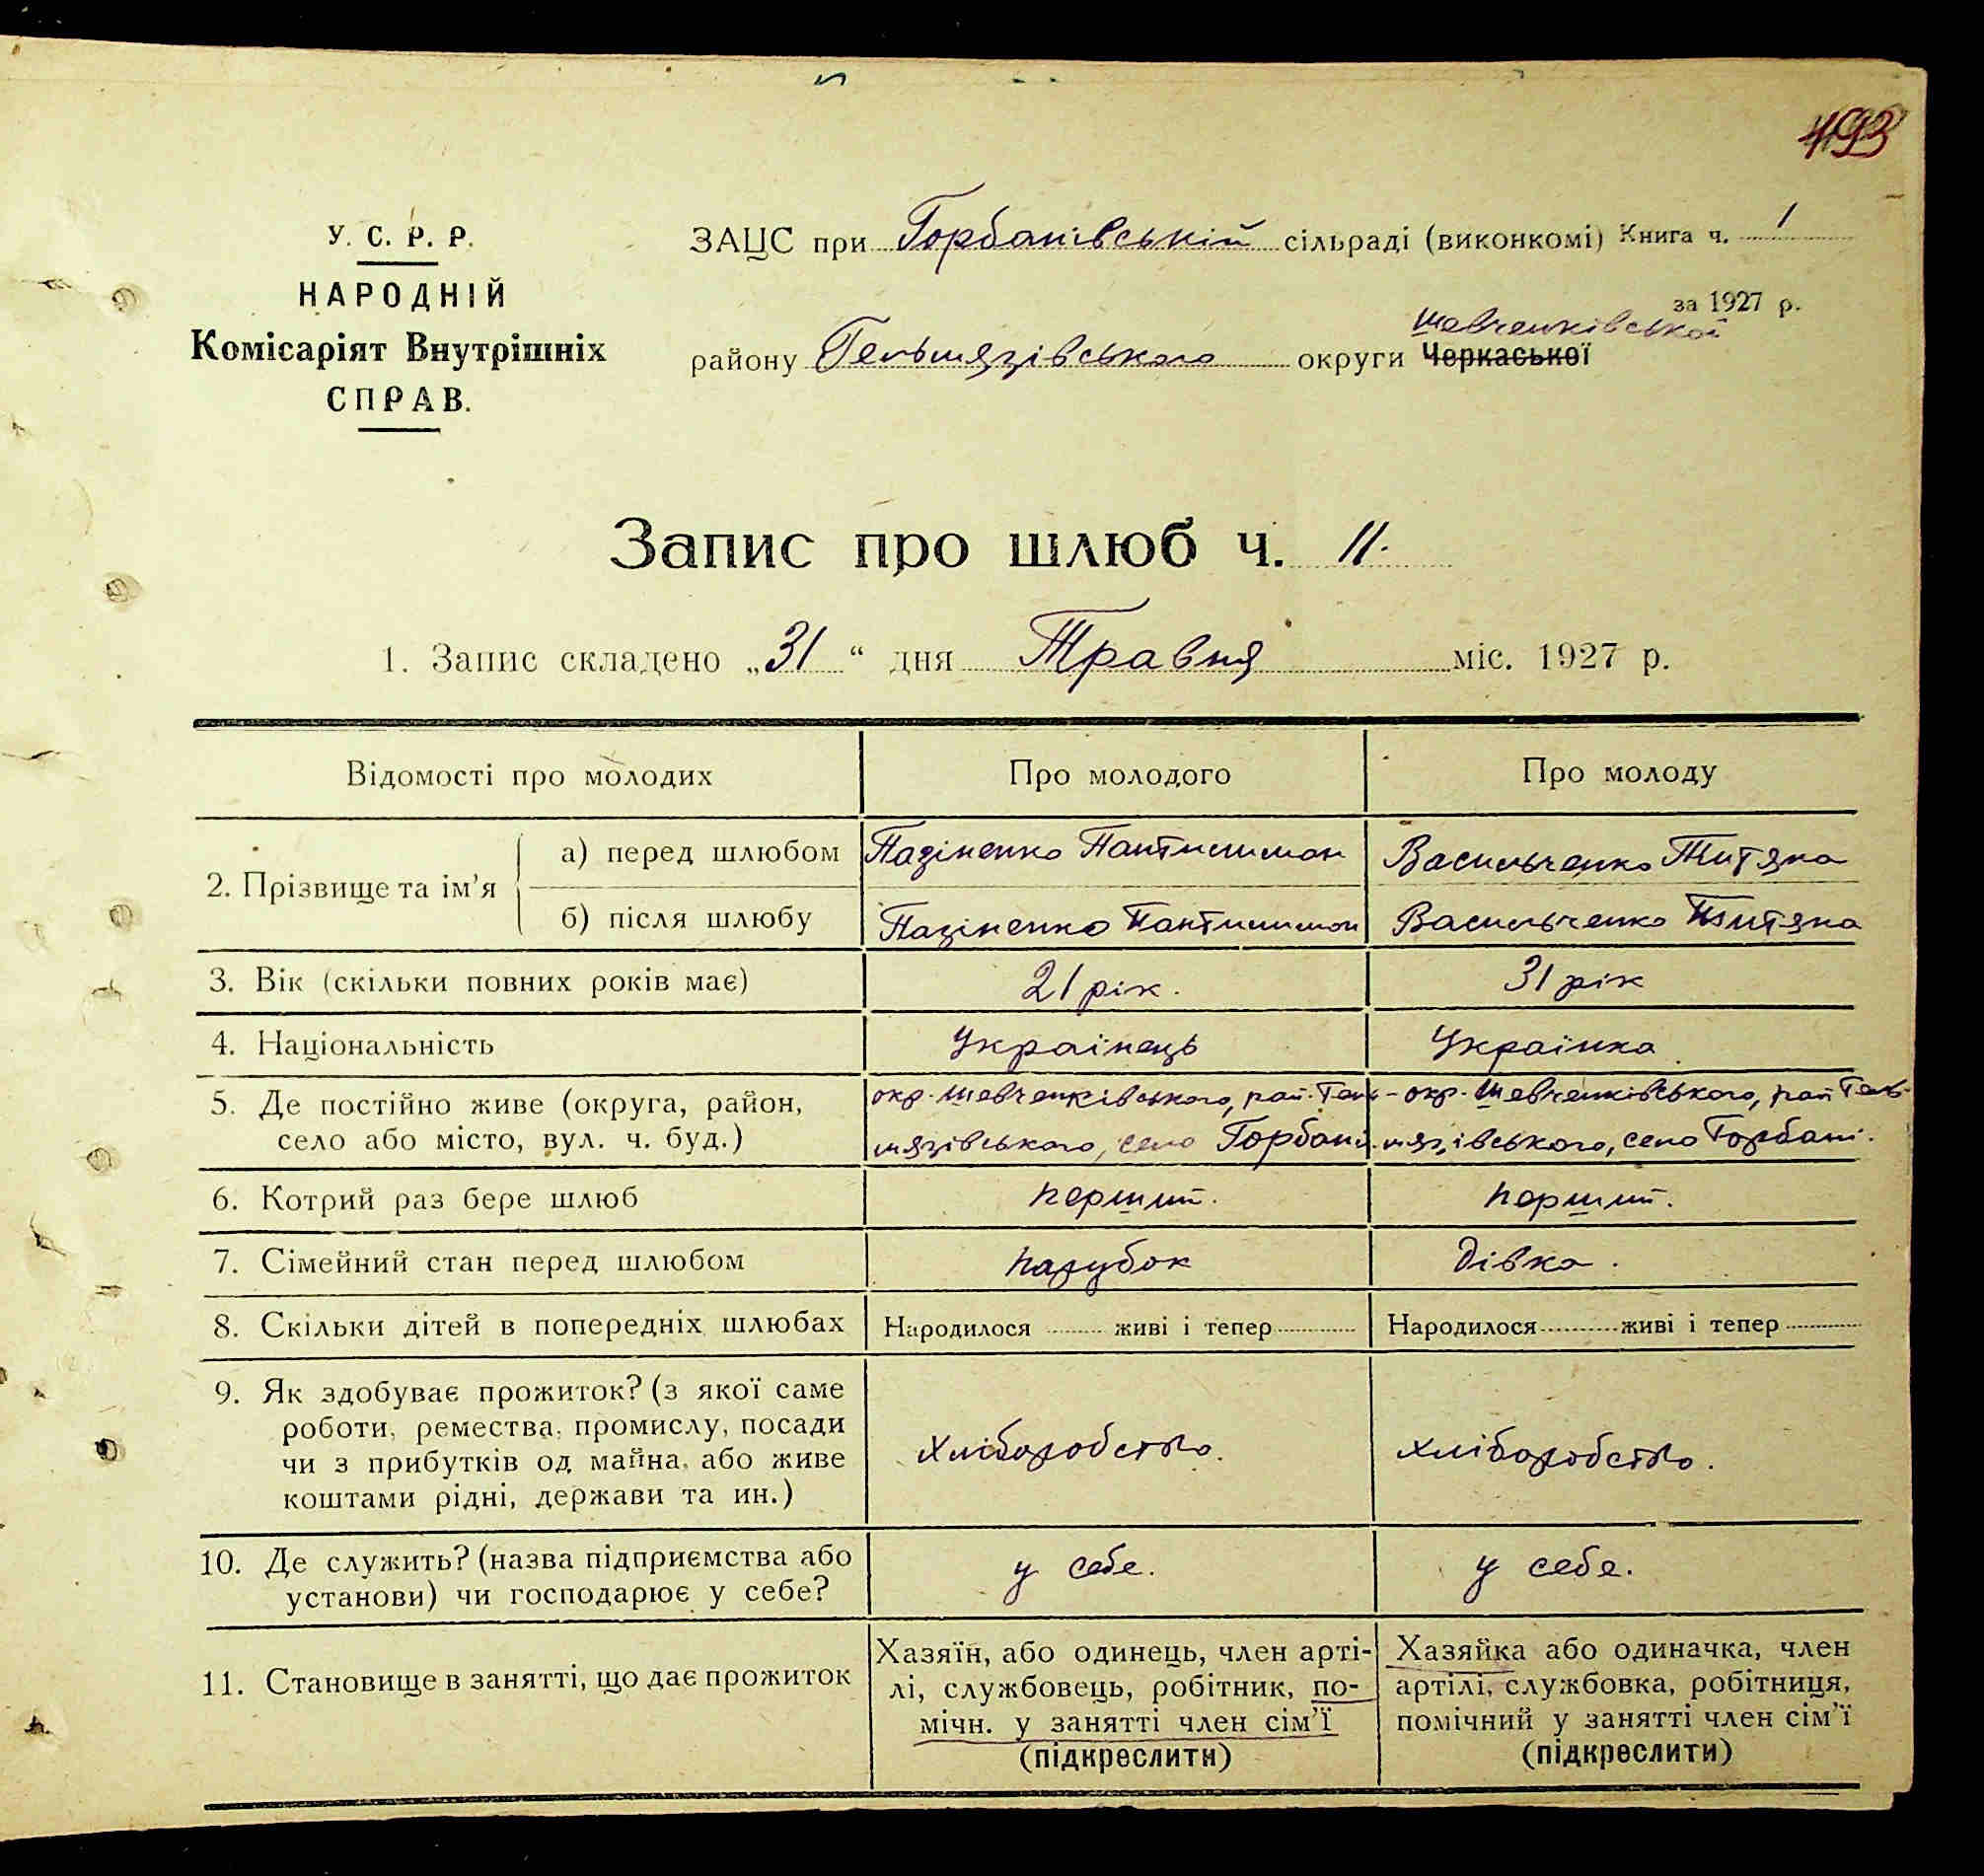 493
У. С. Р. Р.
НАРОДНІЙ
Комісаріят Внутрішніх
СПРАВ.
ЗАЦС при Горбанівській сільраді (виконкомі) Книга ч. 1
за 1927 р.
Шевченківської
району Гельмязівського округи Черкаської
Запис про шлюб ч. 11.
1. Запис складено „31“ дня Травня міс. 1927 р.
Відомості про молодих Про молодого Про молоду
2. Прізвище та ім’я
а) перед шлюбом Пазіненко Пантилимон Васильченко Титяна
б) після шлюбу Пазіненко Пантилимон Васильченко Титяна
3. Вік (скільки повних років має) 21 рік. 31 рік
4. Національність Українець Українка
5. Де постійно живе (округа, район, окр. Шевченківського, рай. Гель- окр. Шевченківського, рай Гель-
село або місто, вул. ч. буд.) мязівського, село Горбані. мязівського, село Горбані.
6. Котрий раз бере шлюб перший. перший.
7. Сімейний стан перед шлюбом парубок дівка.
8. Скільки дітей в попередніх шлюбах Народилося живі і тепер Народилося живі і тепер
9. Як здобуває прожиток? (з якої саме
роботи, ремества, промислу, посади
чи з прибутків од майна, або живе
коштами рідні, держави та ин.)
хліборобство. хліборобство.
10. Де служить? (назва підприємства або
установи) чи господарює у себе?
у себе. у себе.
11. Становище в занятті, що дає прожиток
Хазяїн, або одинець, член арті-
лі, службовець, робітник, по-
мічн. у занятті член сім’ї
(підкреслити)
Хазяйка або одиначка, член
артілі, службовка, робітниця,
помічний у занятті член сім’ї
(підкреслити)